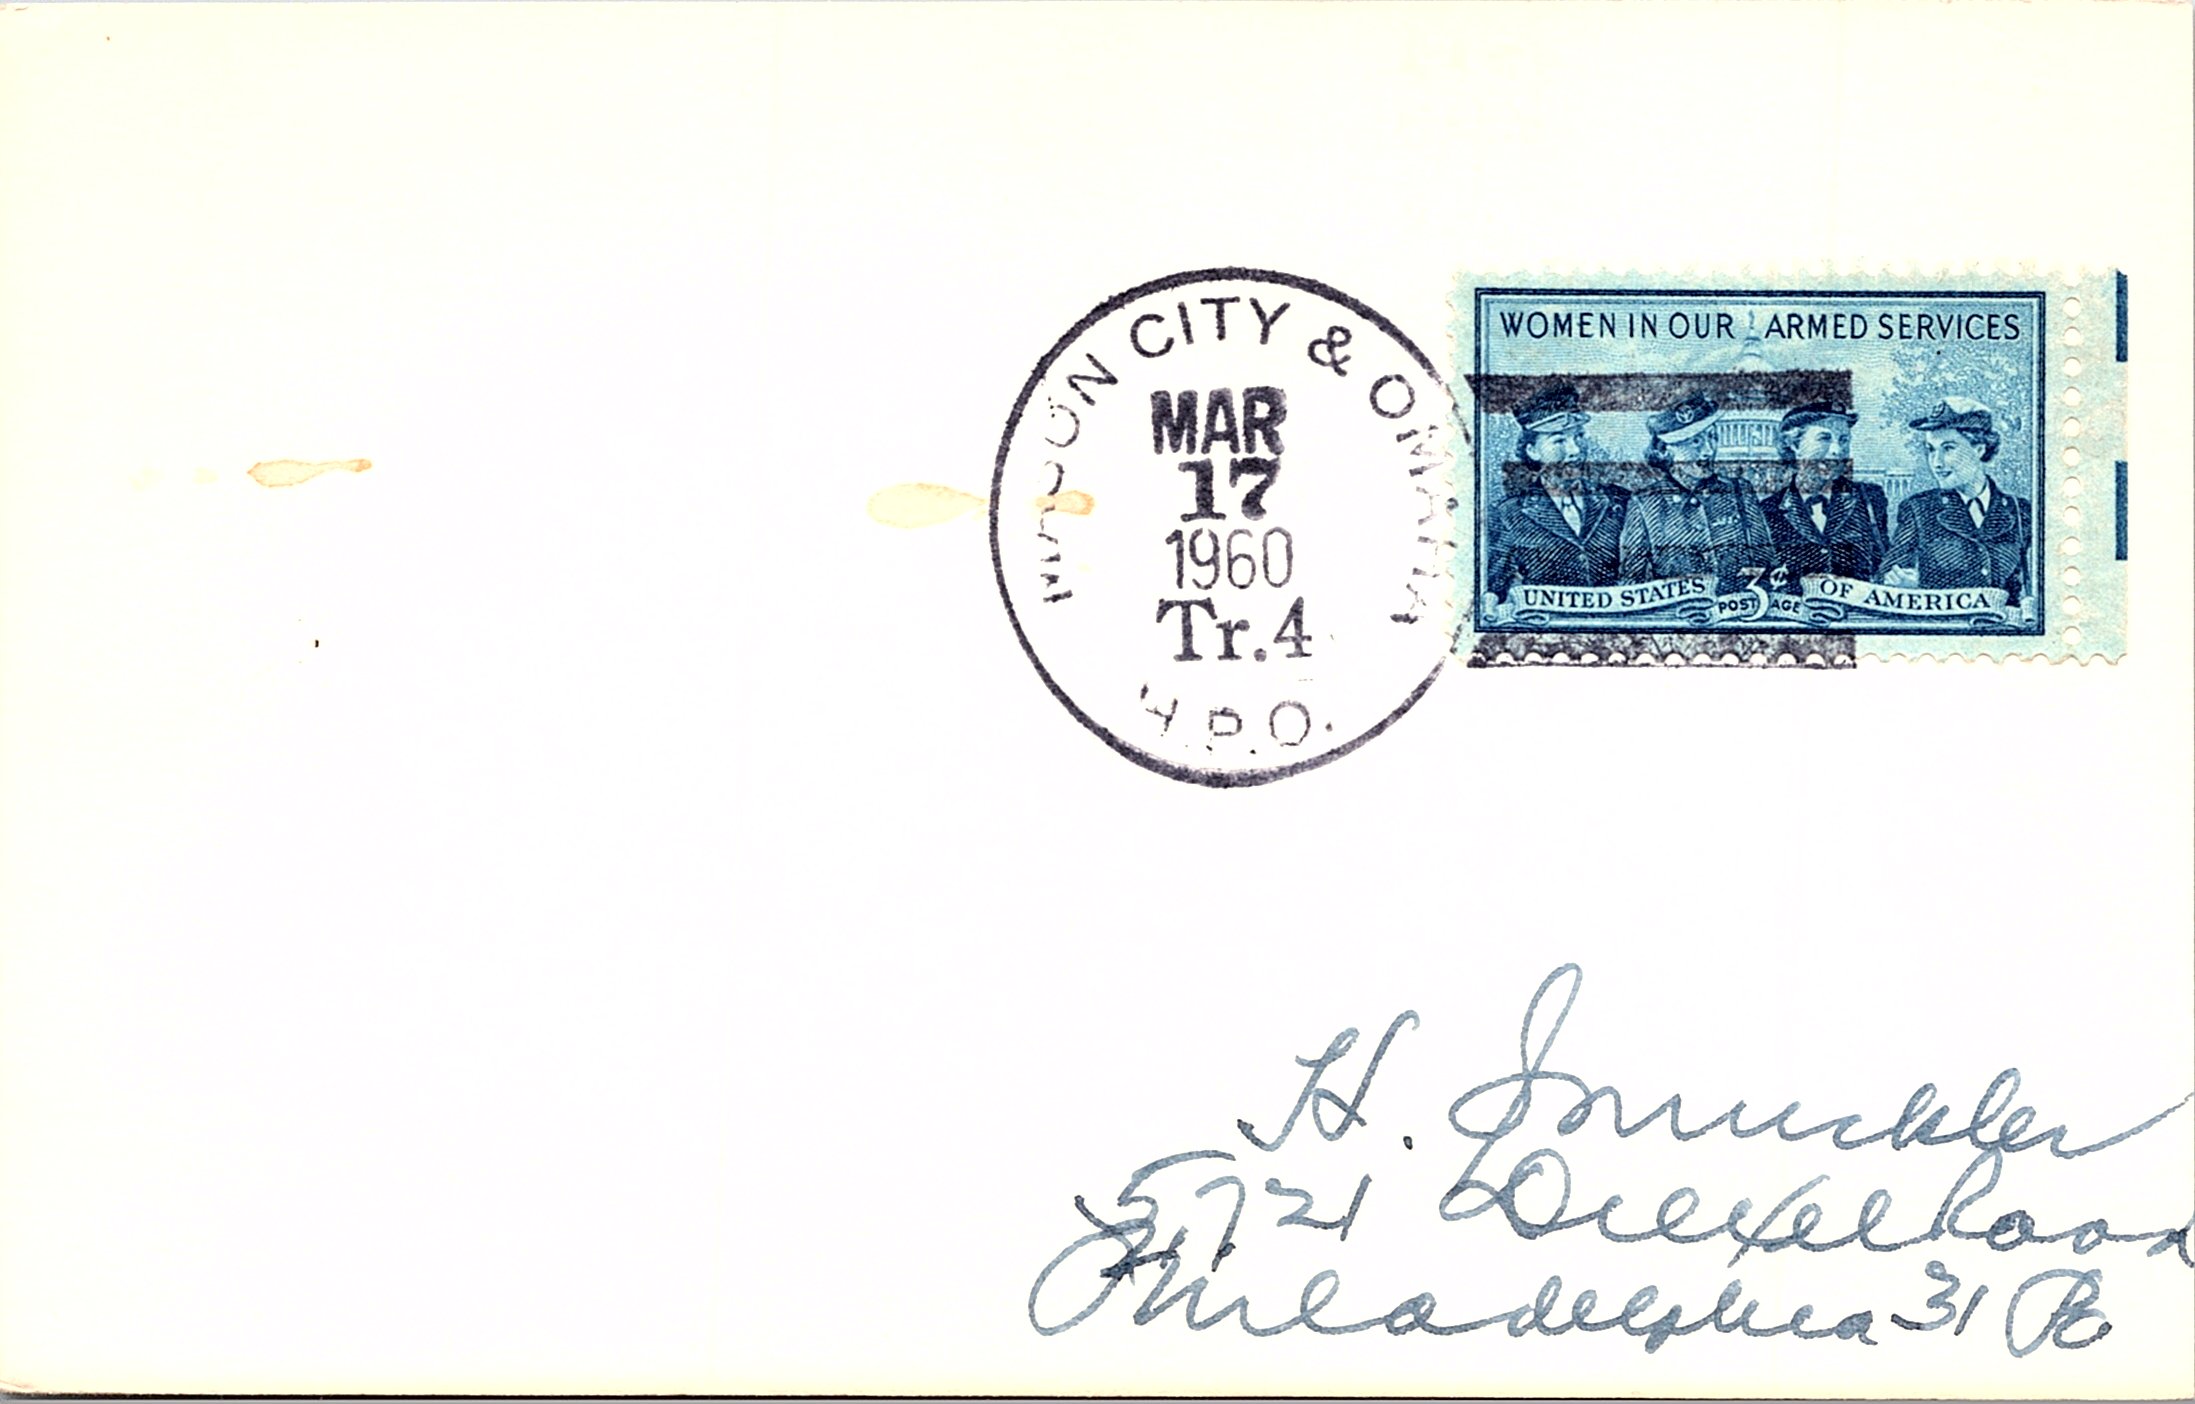 MASON CITY & OMAHA
MAR
17
1960
Tr.4
H.P.O.
WOMEN IN OUR ARMED SERVICES
UNITED STATES 3¢ OF AMERICA
POSTAGE
H.
5721 Drexel Road
Philadelphia 31 Pa